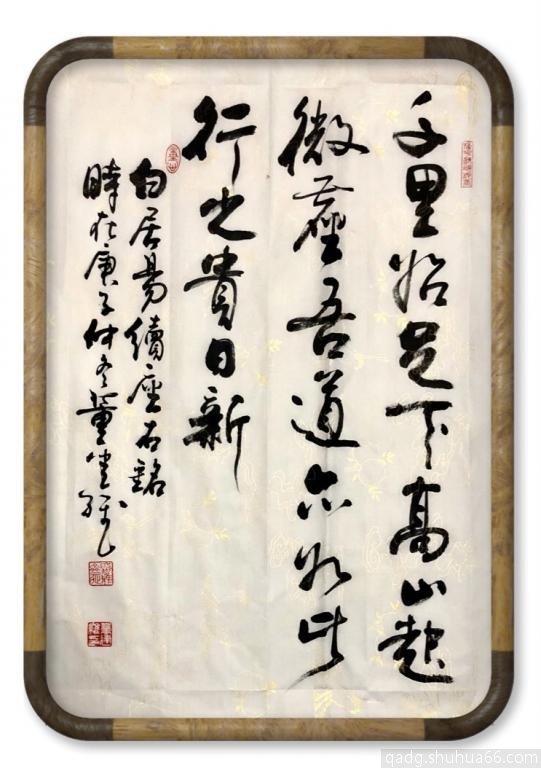 千里始足下高山起
微塵吾道亦如此
行之貴日新
白居易續座右銘
時在庚子仲冬董
qadg.shuhua66.com